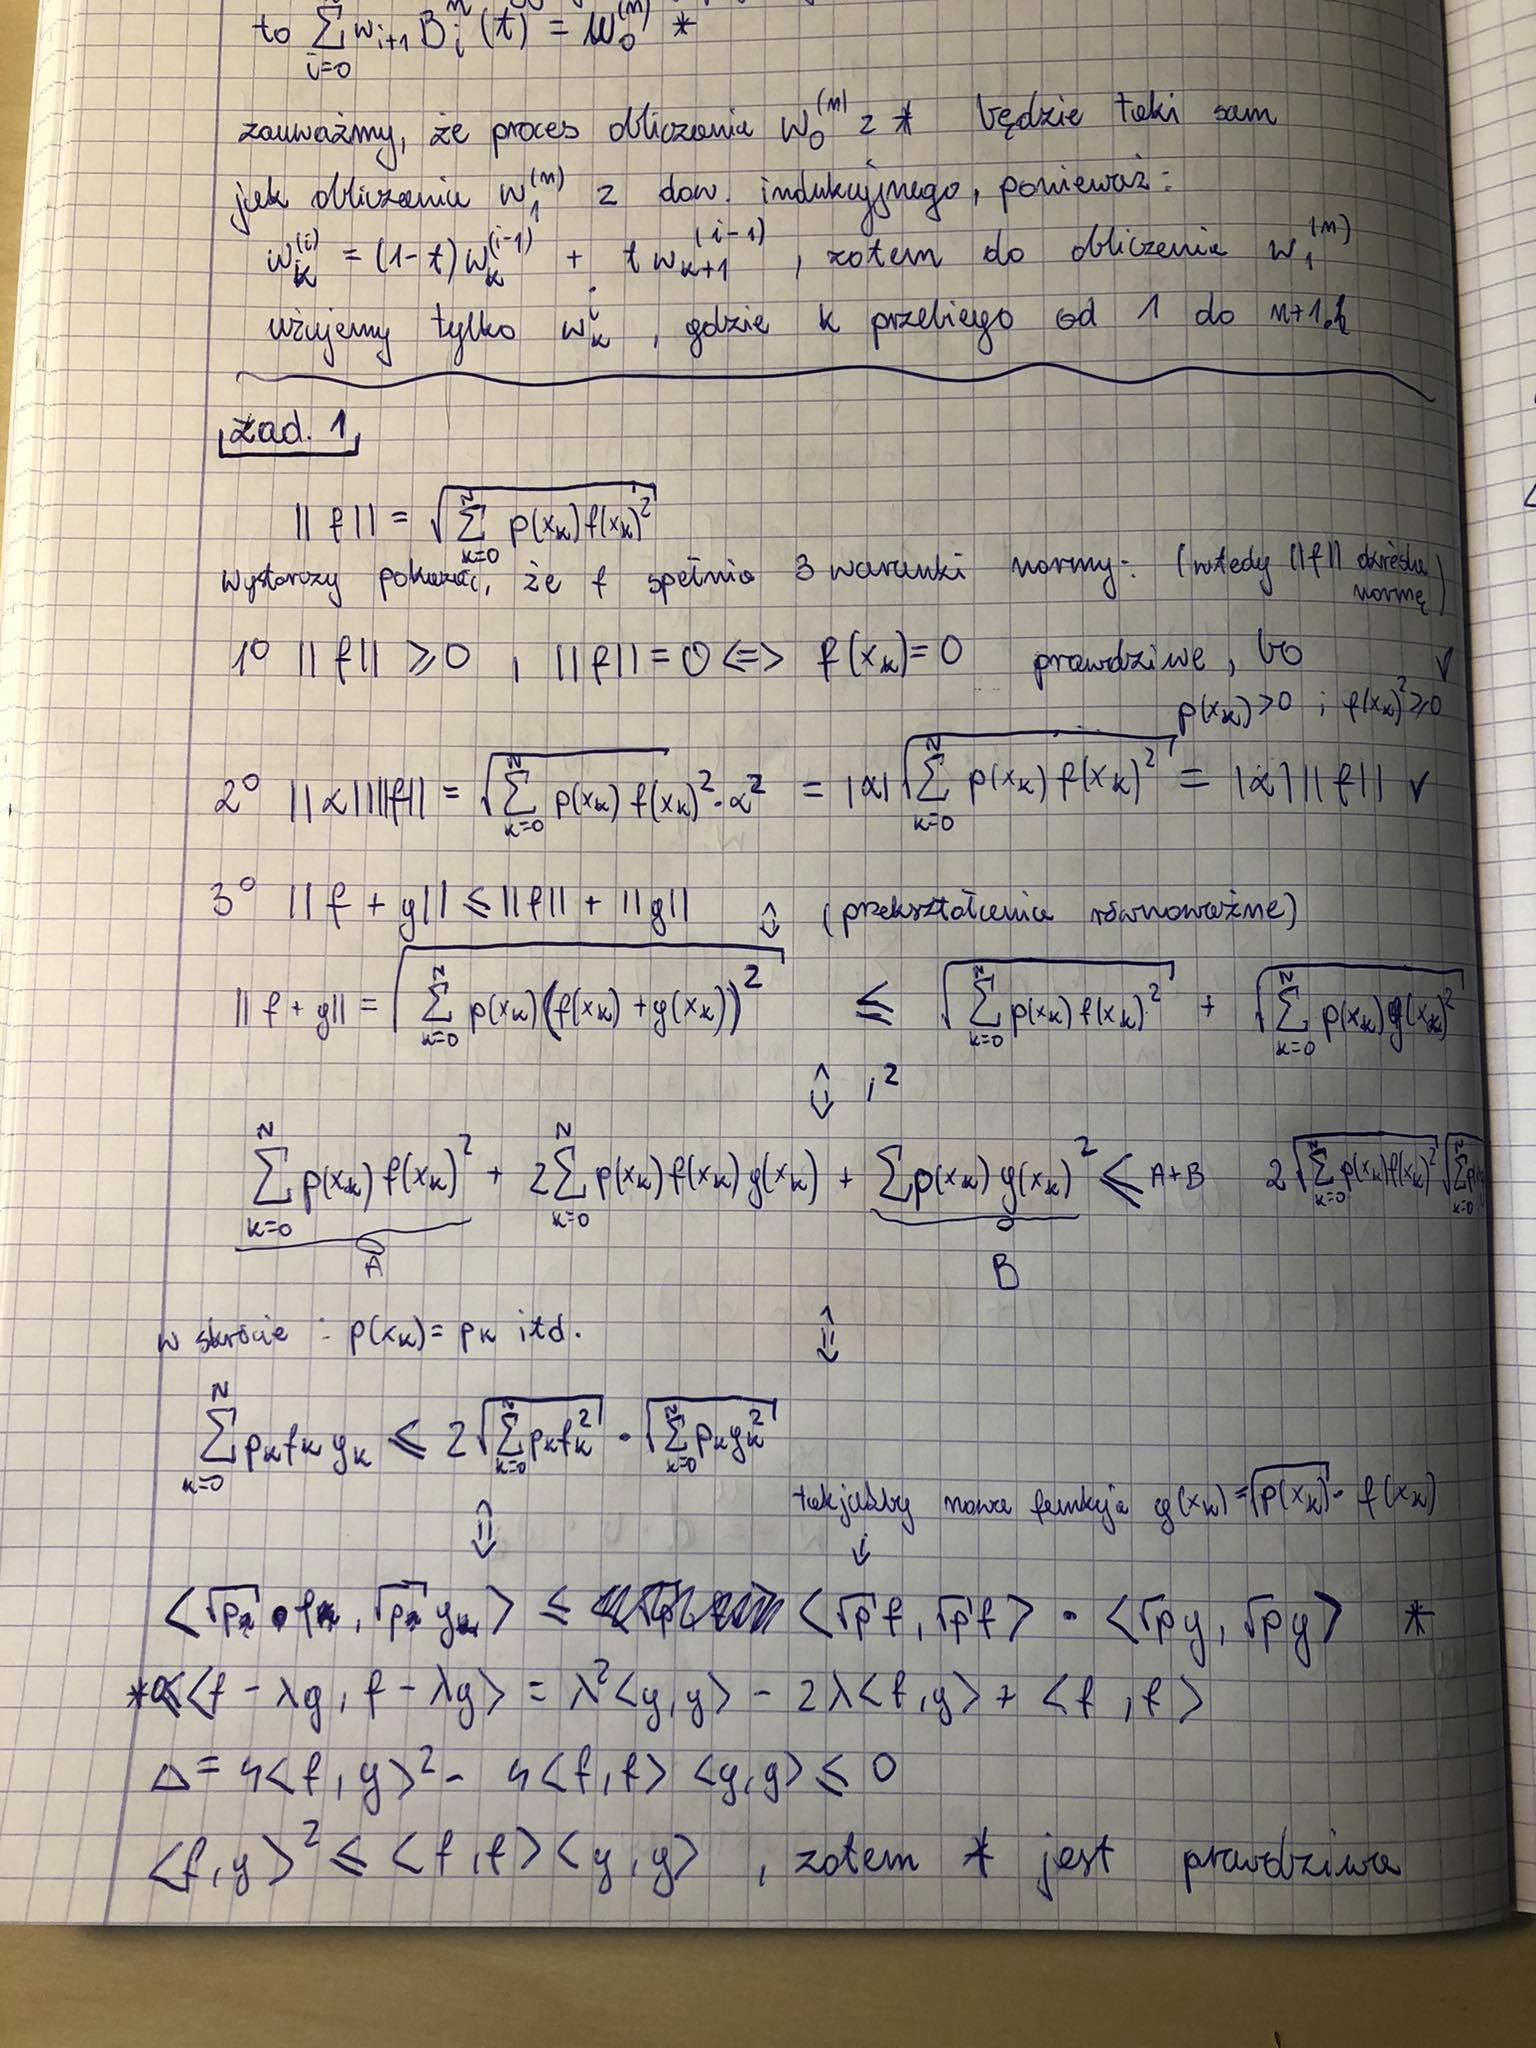 to ∑_{i=0}^{n} w_{i+1} B_i^n (t) = w_0^{(n)} *
zauważmy, że proces obliczania w_0^{(n)} z * będzie taki sam
jak obliczanie w_1^{(n)} z dow. indukcyjnego, ponieważ:
w_k^{(i)} = (1-t) w_k^{(i-1)} + t w_{k+1}^{(i-1)}, zatem do obliczenia w_1^{(n)}
użujemy tylko w_k^i, gdzie k przebiega od 1 do n+1.
zad. 1
||f|| = √(∑_{k=0}^{N} p(x_k) f(x_k)²)
wystarczy pokazać, że f spełnia 3 warunki normy: (wtedy ||f|| określa
normę)
1° ||f|| ⩾ 0 , ||f|| = 0 <=> f(x_k) = 0 prawdziwe, bo ✓
p(x_k) > 0 ; f(x_k)² ⩾ 0
2° ||α||||f|| = √(∑_{k=0}^{N} p(x_k) f(x_k)² · α²) = |α| √(∑_{k=0}^{N} p(x_k) f(x_k)²) = |α| ||f|| ✓
3° ||f + g|| ⩽ ||f|| + ||g|| ⇕ (przekształcenia równoważne)
||f + g|| = √(∑_{k=0}^{N} p(x_k)(f(x_k) + g(x_k))²) ⩽ √(∑_{k=0}^{N} p(x_k) f(x_k)²) + √(∑_{k=0}^{N} p(x_k) g(x_k)²)
⇕ ,²
∑_{k=0}^{N} p(x_k) f(x_k)² + 2∑_{k=0}^{N} p(x_k) f(x_k) g(x_k) + ∑ p(x_k) g(x_k)² ⩽ A+B 2√(∑_{k=0}^{N} p(x_k) f(x_k)²) √(∑_{k=0}^{N} p(x
A B
w skrócie : p(x_k) = p_k itd. ⇕
∑_{k=0}^{N} p_k f_k g_k ⩽ 2√(∑_{k=0}^{N} p_k f_k²) · √(∑_{k=0}^{N} p_k g_k²)
takjakby nowa funkcja g(x_k) = √p(x_k) · f(x_k)
⇕ ↓
<√p · f, √p g> ≤ <√p f, √p f> · <√p g, √p g> *
* 0 ⩽ <f - λg, f - λg> = λ²<g, g> - 2λ<f, g> + <f, f>
Δ = 4<f, g>² - 4<f, f> <g, g> ⩽ 0
<f, g>² ⩽ <f, f> <g, g> , zatem * jest prawdziwa